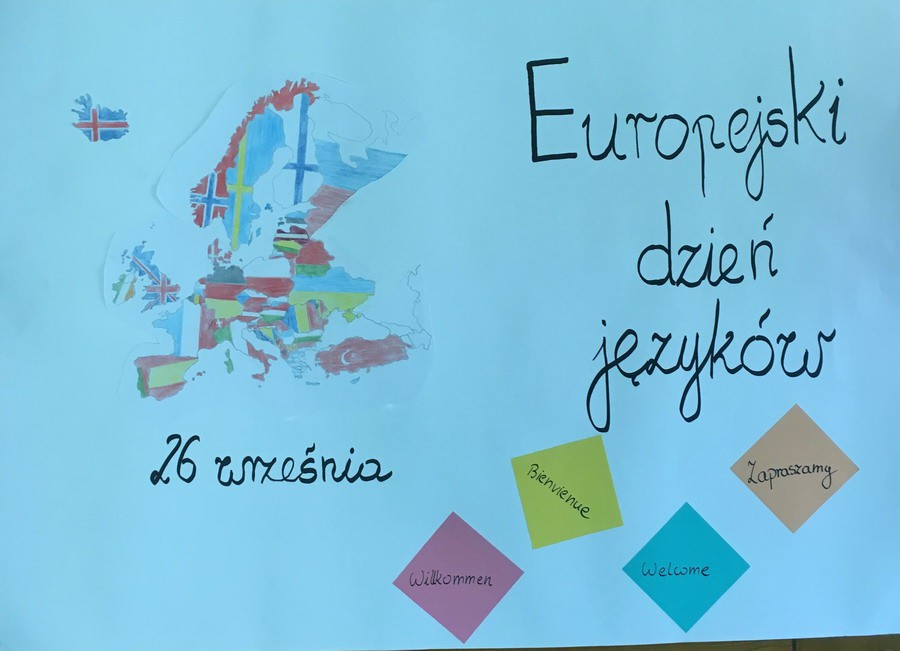 Europejski
dzień
języków
26 września
Bienvienue
Zapraszamy
Willkommen
Welcome